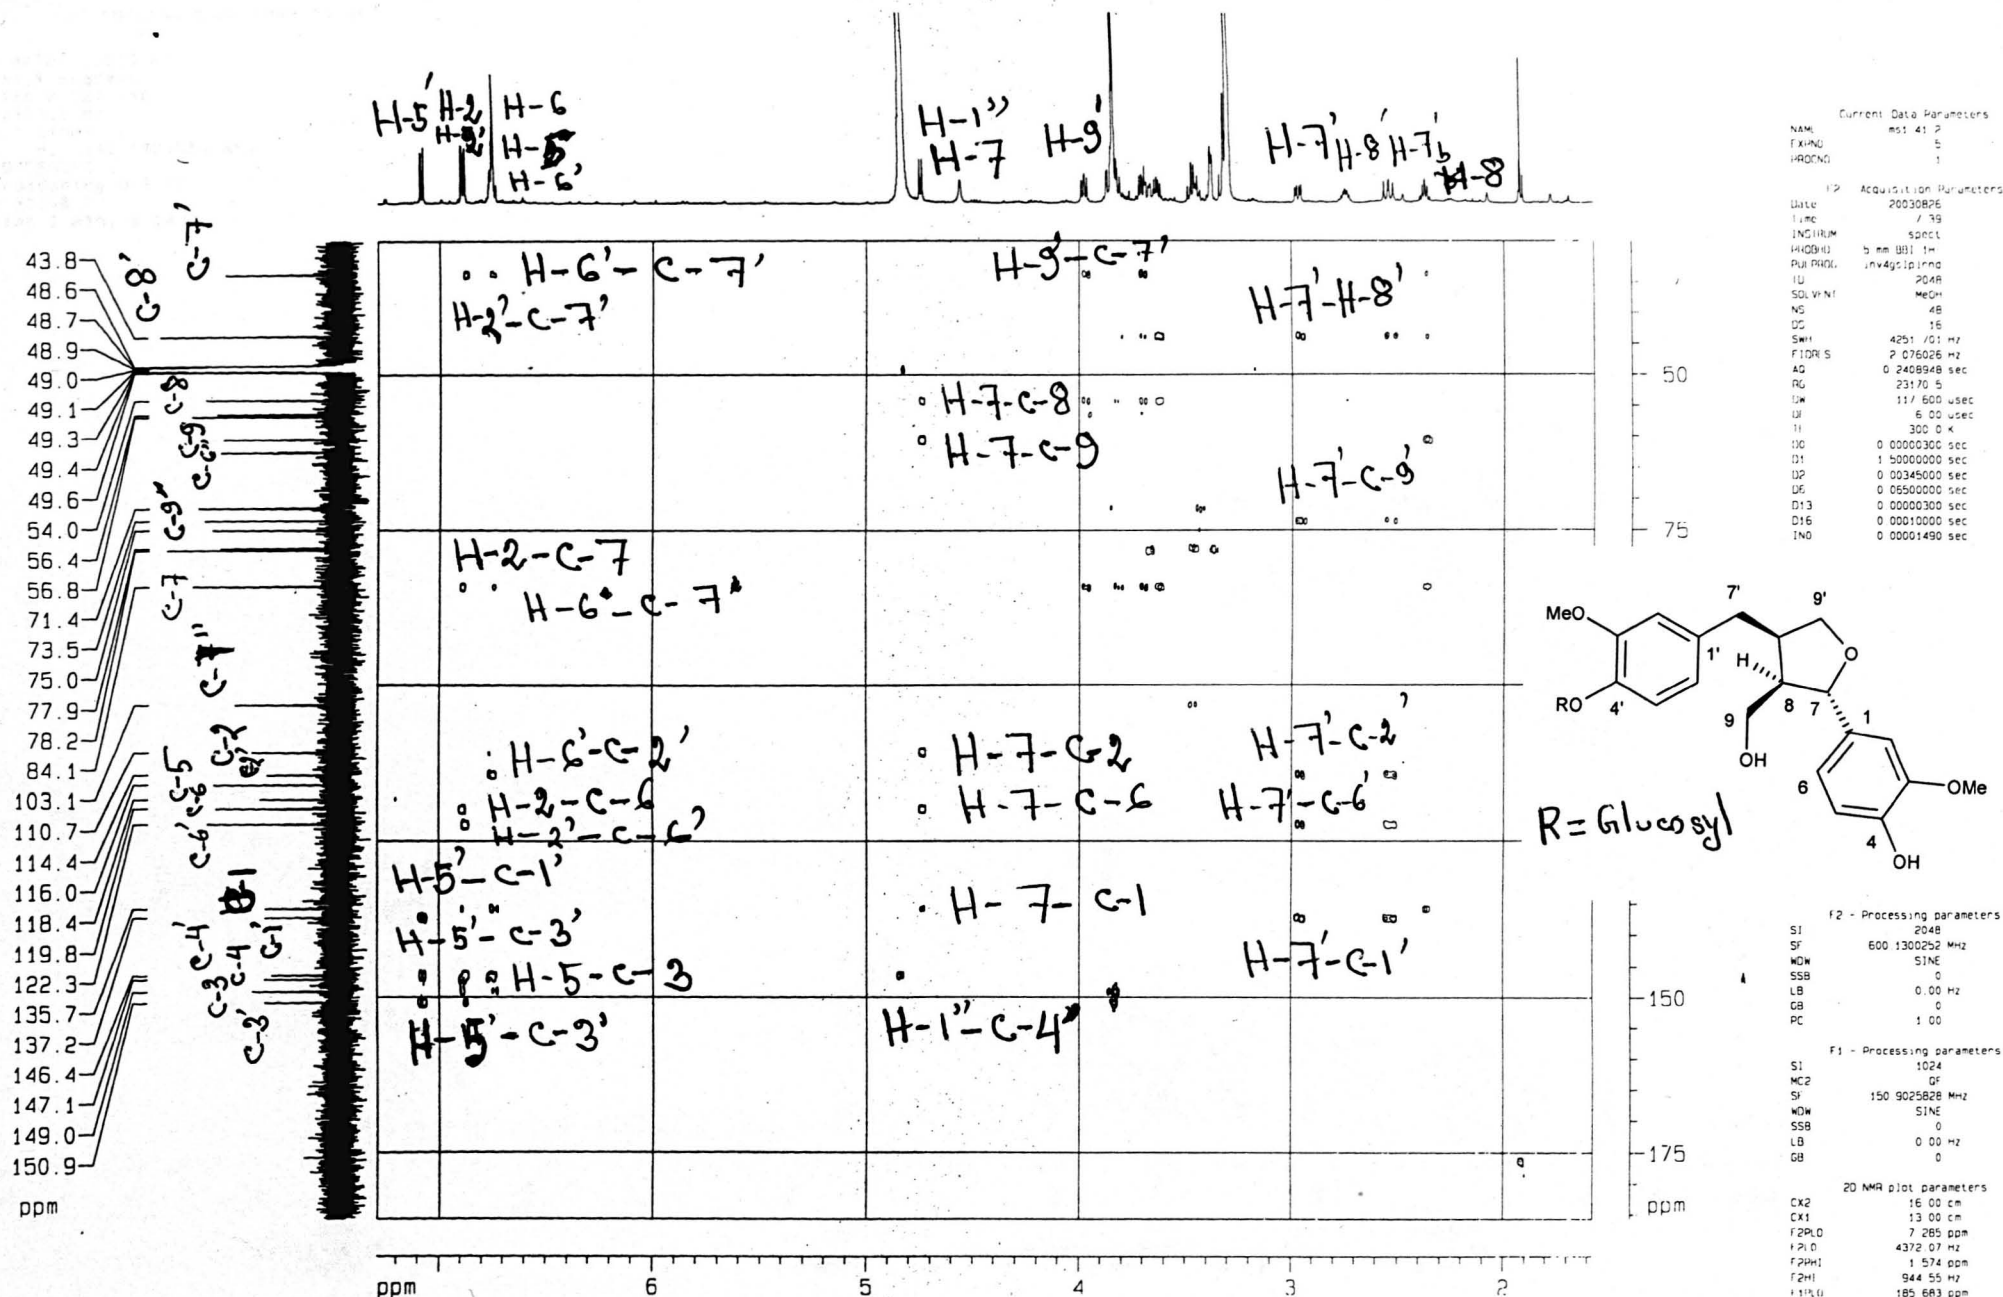 H-5' H-2 H-6
H-2' H-5
H-6'
H-1''
H-7
H-9'
H-7' H-8' H-7'b H-8
C-7'
C-8'
C-8
C-9
C-6''
C-9'
C-7
C-1''
C-2
C-2'
C-5
C-6
C-6'
C-1
C-4' C-4 C-1'
C-3
C-3'
43.8
48.6
48.7
48.9
49.0
49.1
49.3
49.4
49.6
54.0
56.4
56.8
71.4
73.5
75.0
77.9
78.2
84.1
103.1
110.7
114.4
116.0
118.4
119.8
122.3
135.7
137.2
146.4
147.1
149.0
150.9
ppm
H-6'-C-7'
H-2'-C-7'
H-9'-C-7'
H-7'-H-8'
H-7-C-8
H-7-C-9
H-7'-C-9'
H-2-C-7
H-6'-C-7'
H-6'-C-2'
H-2-C-6
H-2'-C-6'
H-7-C-2
H-7-C-6
H-7'-C-2'
H-7'-C-6'
H-5'-C-1'
H-5'-C-3'
H-5-C-3
H-5'-C-3'
H-7-C-1
H-1''-C-4'
H-7'-C-1'
50
75
150
175
ppm
ppm 6 5 4 3 2
Current Data Parameters
NAME ms1 41 2
EXPNO 5
PROCNO 1
F2 - Acquisition Parameters
Date 20030826
Time 7 39
INSTRUM spect
PROBHD 5 mm BBI 1H
PULPROG inv4gslplrnd
TD 2048
SOLVENT MeOH
NS 48
DS 16
SWH 4251 701 Hz
FIDRES 2 076026 Hz
AQ 0 2408948 sec
RG 23170 5
DW 117 600 usec
DE 6 00 usec
TE 300 0 K
D0 0 00000300 sec
D1 1 50000000 sec
D2 0 00345000 sec
D6 0 06500000 sec
D13 0 00000300 sec
D16 0 00010000 sec
IN0 0 00001490 sec
MeO 7' 9'
1' H O
RO 4' 8 7 1
9
OH
6 OMe
4
OH
R = Glucosyl
F2 - Processing parameters
SI 2048
SF 600 1300252 MHz
WDW SINE
SSB 0
LB 0.00 Hz
GB 0
PC 1 00
F1 - Processing parameters
SI 1024
MC2 QF
SF 150 9025828 MHz
WDW SINE
SSB 0
LB 0 00 Hz
GB 0
2D NMR plot parameters
CX2 16 00 cm
CX1 13 00 cm
F2PLO 7 285 ppm
F2LO 4372.07 Hz
F2PHI 1 574 ppm
F2HI 944 55 Hz
F1PLO 185 683 ppm